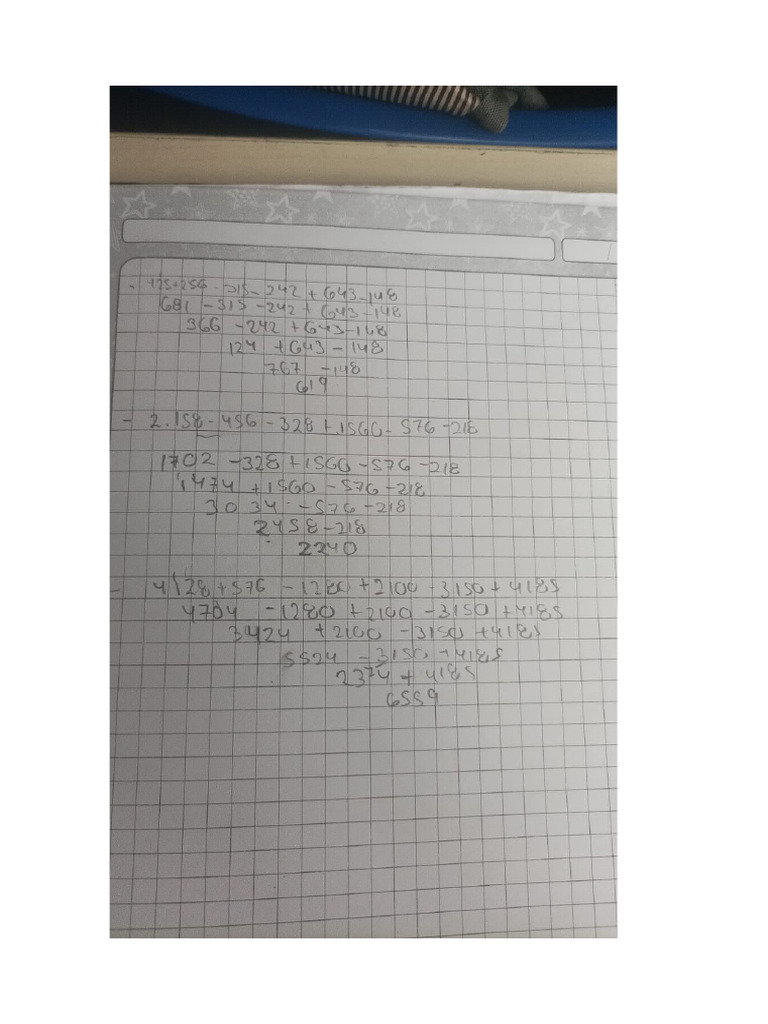 - 425+256 - 315 - 242 + 643 - 148
681 - 315 - 242 + 643 - 148
366 - 242 + 643 - 148
124 + 643 - 148
767 - 148
619
- 2.158 - 456 - 328 + 1560 - 576 - 218
1702 - 328 + 1560 - 576 - 218
1474 + 1560 - 576 - 218
3034 - 576 - 218
2458 - 218
2240
- 4128 + 576 - 1280 + 2100 - 3150 + 4185
4704 - 1280 + 2100 - 3150 + 4185
3424 + 2100 - 3150 + 4185
5524 - 3150 + 4185
2374 + 4185
6559